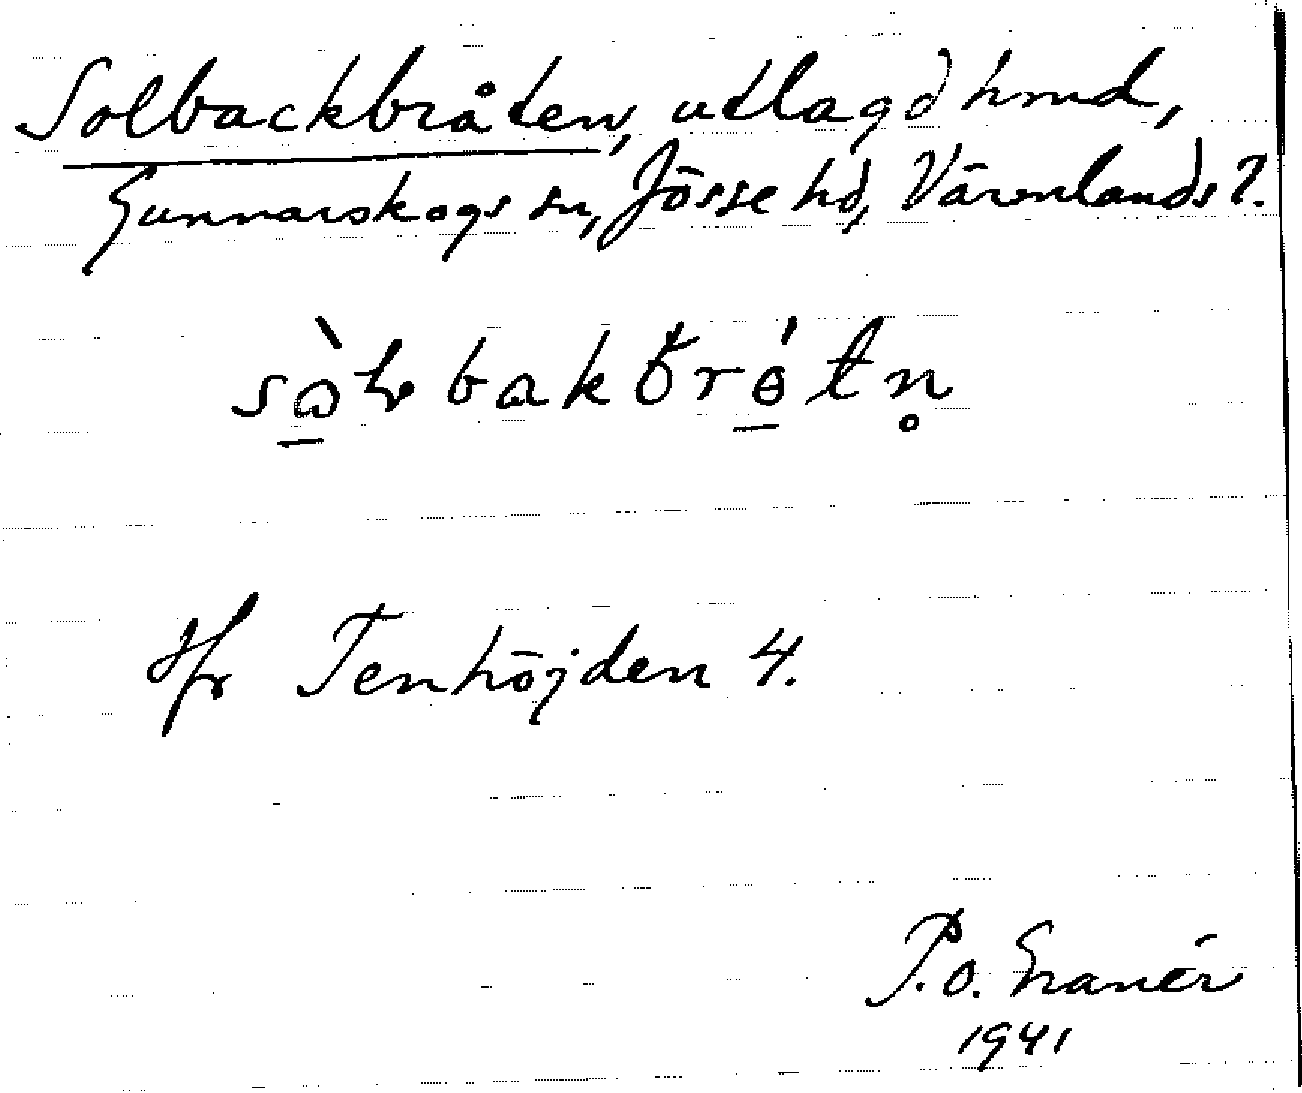 Solbackbråten, utlagd hmd,
Gunnarskogs sn, Jösse hd, Värmlands l.
Hfr Tenhöjden 4.
P.O. Granér
1941